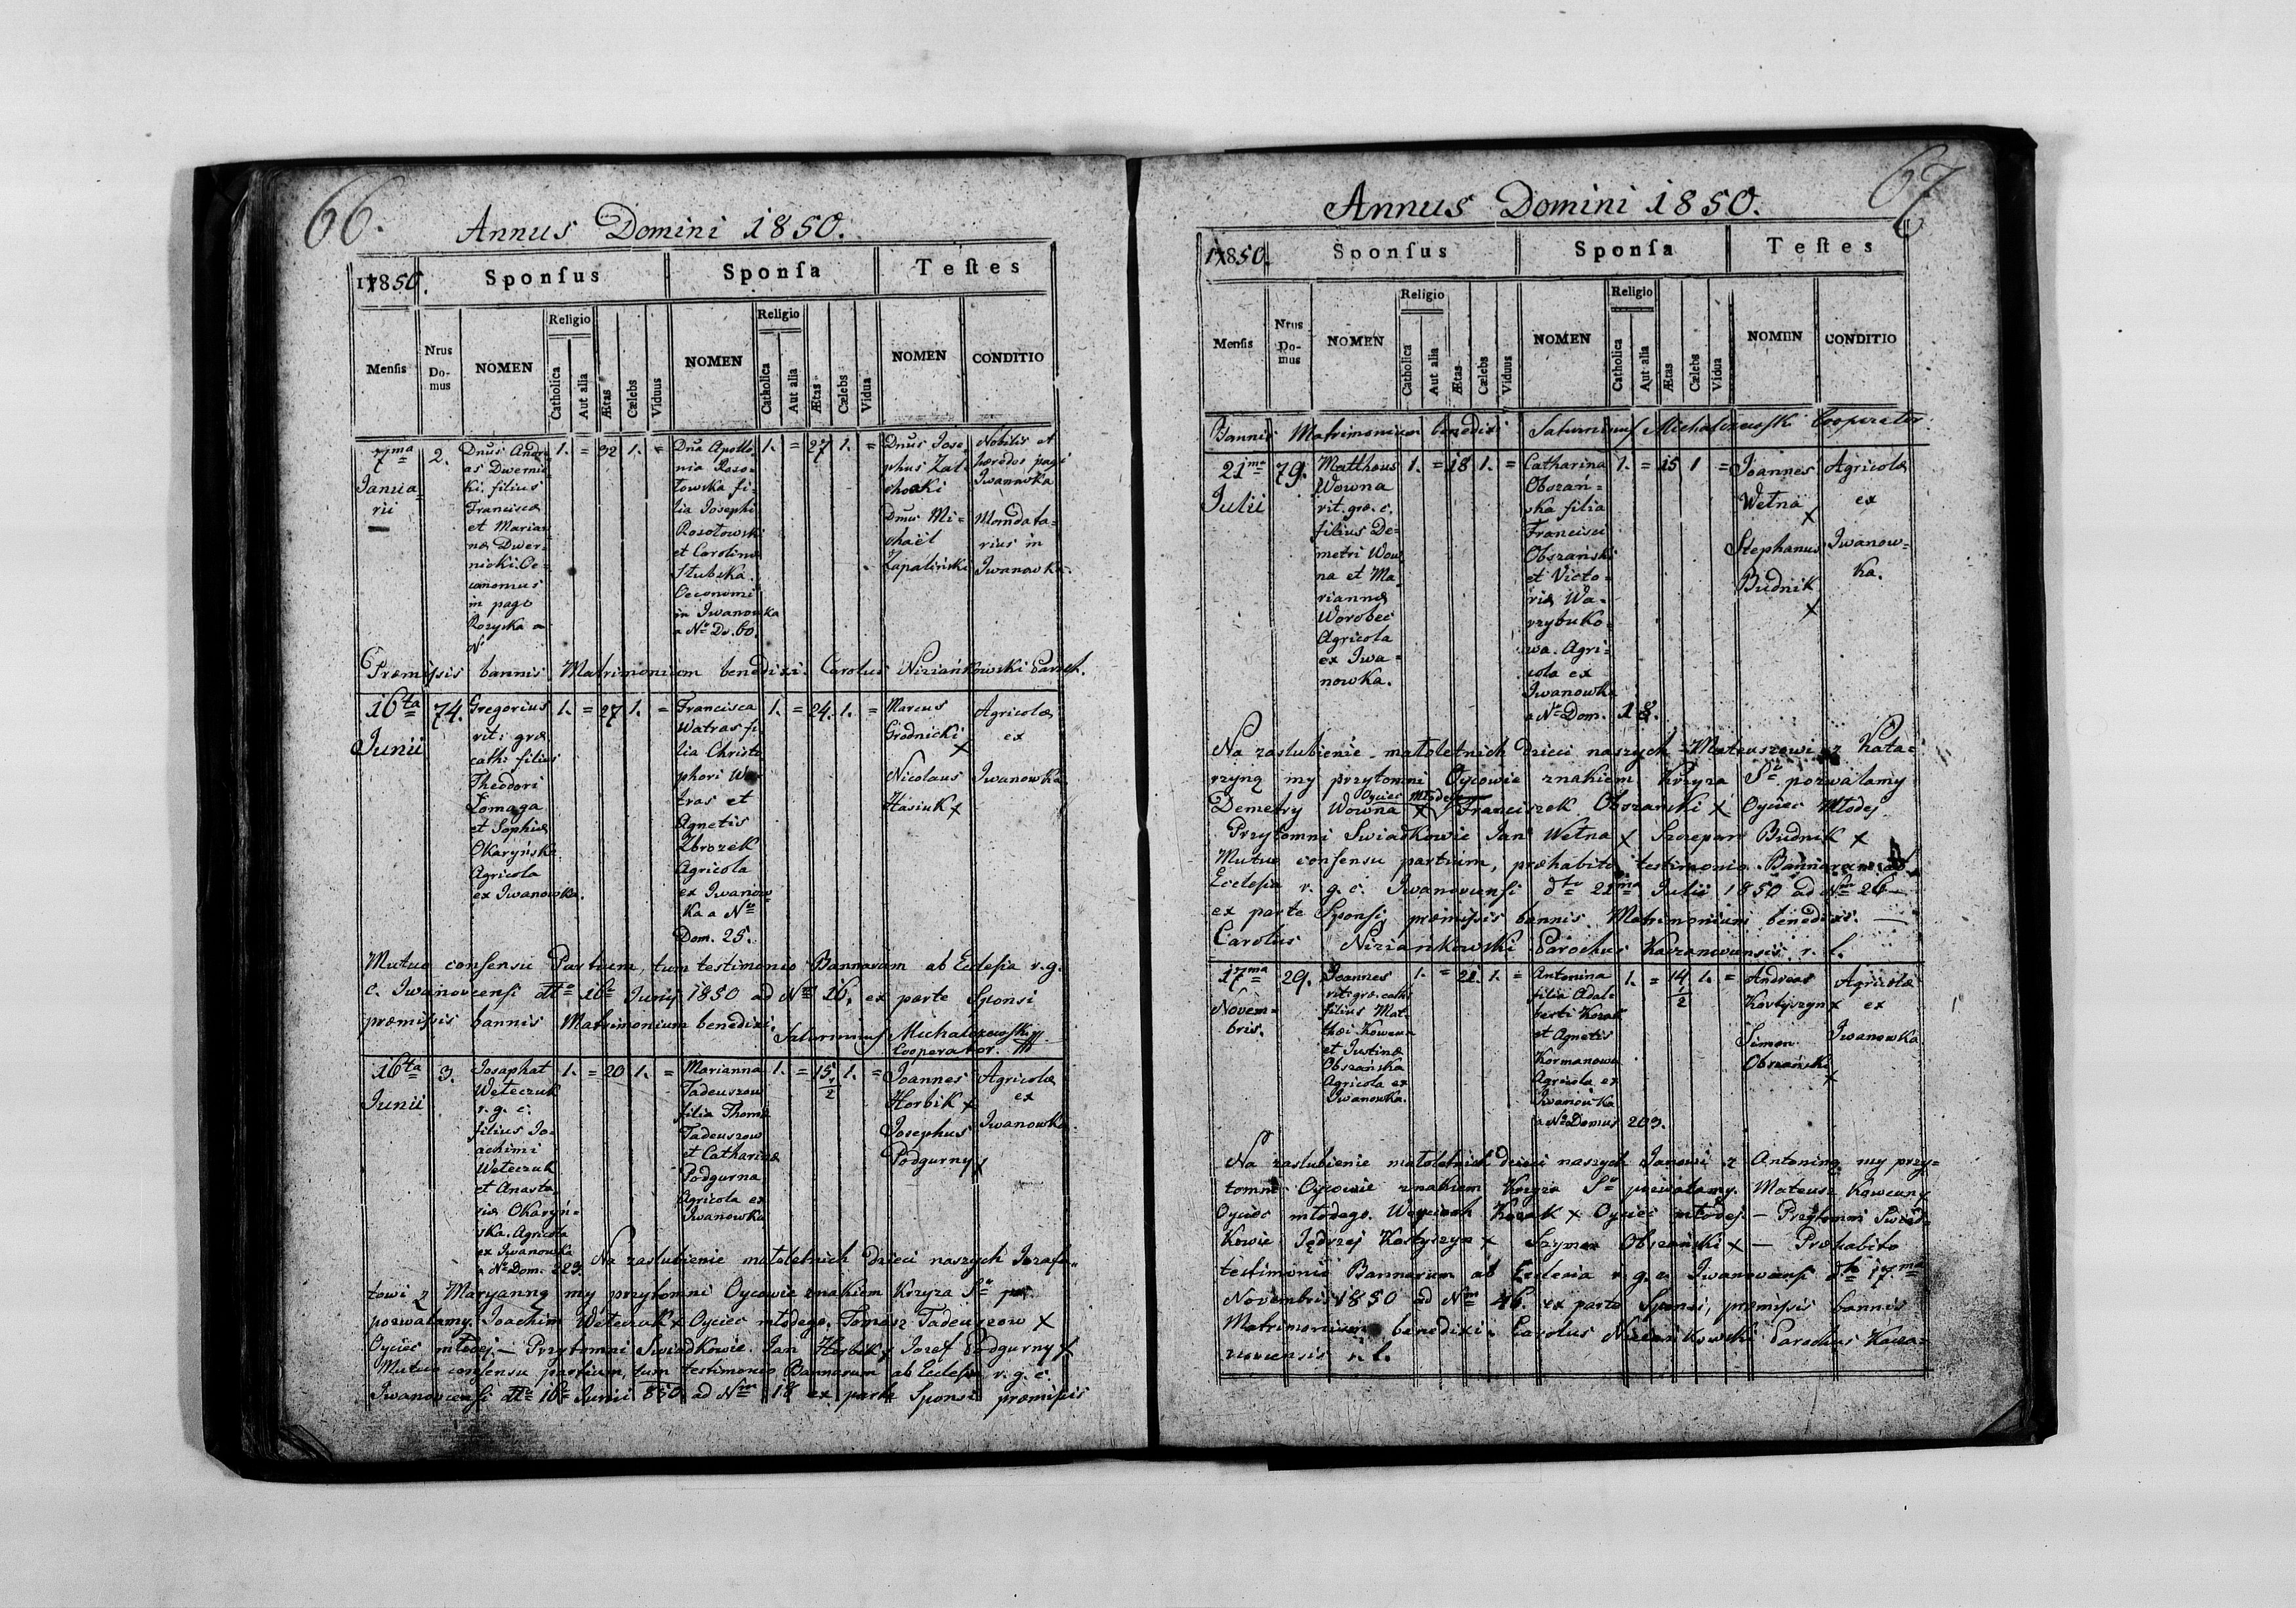 66.
Annus Domini 1850.
1850.
Sponſus
Sponſa
Teſtes
Menſis
Nrus Do- mus
NOMEN
Religio
Catholica
Aut alia
Ætas
Cælebs
Viduus
NOMEN
Religio
Catholica
Aut alia
Ætas
Cælebs
Vidua
NOMEN
CONDITIO
7ma
Janua-
rii
2.
Dnus Andre
as Dwernic
ki filius
Francisci
et Marian
næ Dwer-
nicki Oe-
conomus
in pago
1. = 32 1. =
Dna Apollo-
nia Roso-
łowska fi-
lia Josephi
Rosołowski
et Carolina
Słubska.
Oeconomi
in Iwanowka
a No Do. 60.
1. = 27 1. =
Dnus Jose-
phus
Dnus Mi-
chaël
Zapaliński
Nobilis et
hæredos pagi
Iwanowka
Mandata-
rius in
Iwanowka
Præmissis bannis Matrimonium benedixi. Carolus Niziańkowski Paroch.
16ta
Junii
74.
Gregorius
rit: græ
cath: filius
Theodori
Łomaga
et Sophiæ
Okaryńska
Agricola
ex Iwanowka.
1. = 27 1. =
Francisca
Watras fi
lia Christo
phori Wa
tras et
Agnetis
Zbrozek
Agricola
ex Iwanow
ka a No
Dom. 25.
1. = 24. 1. =
Marcus
Grodnicki
x
Nicolaus
Hasiuk x
Agricolæ
ex
Iwanowka
Mutuo consensu Partium, tum testimonio Bannorum ab Ecclesia r. g.
c. Iwanovcensi dto 16ta Junij 1850 ad Nrm 16, ex parte Sponsi
præmissis bannis Matrimonium benedixi.
Saturninus Michalczewski
Cooperator.
16ta
Junii
3.
Josaphat
Weteczuk
r. g. c.
filius Jo-
achimi
Weteczuk
et Anasta
siæ Okaryń-
ska. Agricola
ex Iwanowka
a No Dom. 223.
1. = 20 1. =
Marianna
Tadeuszow
filia Thomæ
Tadeuszow
et Catharinæ
Podgurna
Agricola ex
Iwanowka
1. = 15 1/2 1. =
Joannes
Horbik x
Josephus
Podgurny x
Agricolæ
ex
Iwanowka
Na zaslubienie małoletnich dzieci naszych Jozafa-
towi z Maryanną my przytomni Oycowie znakiem Krzyza So
pozwalamy. Joachim Weteczuk x Oyciec młodego. Tomasz Tadeuszow x
Oyciec młodej. — Przytomni Swiadkowie. Jan Horbik x Jozef Podgurny x
Mutuo consensu partium, tum testimonio Bannorum ab Ecclesia r. g. c.
Iwanovcensi dto 16ta Junii 850 ad Nrm 18 ex parte Sponsi præmissis
67
Annus Domini 1850.
1850.
Sponſus
Sponſa
Teſtes
Menſis
Nrus Do- mus
NOMEN
Religio
Catholica
Aut alia
Ætas
Cælebs
Viduus
NOMEN
Religio
Catholica
Aut alia
Ætas
Cælebs
Vidua
NOMEN
CONDITIO
Bannis Matrimonium benedixi Saturninus Michalczewski Cooperator.
21ma
Julii
79.
Mattheus
Wowna
rit. græ. c.
filius De-
metri Wow
na et Ma-
riannæ
Worobec
Agricola
ex Iwa-
nowka.
1. = 18 1. =
Catharina
Obszań-
ska filia
Francisci
Obszański
et Victo-
riæ Wa-
rzybuko-
wa. Agri-
cola ex
Iwanowka
a No Dom. 18.
1. = 15 1 =
Joannes
Wełna
x
Stephanus
Budnik
x
Agricolæ
ex
Iwanow-
ka.
Na zaslubienie małoletnich dzieci naszych Mateuszowi z Kata-
rzyną my przytomni Oycowie znakiem Krzyza So pozwalamy
Oyciec Młodego
Demetry Wowna x Franciszek Obszanski x Oyciec Młodej
Przytomni Swiadkowie Jan Wełna x Szczepan Budnik x
Mutuo consensu partium, præhabito testimonio Bannorum ab
Ecclesia r. g. c. Iwanovcensi dto 21ma Julii 1850 ad Nrm 26 —
ex parte Sponsi, præmissis bannis Matrimonium benedixi. —
Carolus Niziańkowski Parochus Kaczanovcensis r. l.
17ma
Novem-
bris.
29.
Joannes
rit: græ. cath:
filius Mat-
thæi
et Justinæ
Obszańska
Agricola ex
Iwanowka.
1. = 21. 1. =
Antonina
filia Adal-
berti Kozak
et Agnetis
Kormanowa
Agricola ex
Iwanowka
a No Domus 203.
1. = 14 1/2 1. =
Andreas
Kostyszyn x
Simon
Obszański
x
Agricolæ
ex
Iwanowka
Na zaslubienie małoletnich dzieci naszych Janowi z Antoniną my przy-
tomni Oycowie znakiem Krzyza So pozwalamy. Mateusz
Oyciec młodego. Woyciech Kozak x Oyciec młodej. — Przytomni Swiad-
kowie Jędrzej Kostyszyn x Szymon Obszański x — Præhabito
testimonio Bannorum ab Ecclesia r. g. c. Iwanovcensi dto 17ma
Novembris 1850 ad Nrm 46. ex parte Sponsi, præmissis bannis
Matrimonium benedixi. Carolus Niziańkowski Parochus Kacza-
novcensis r. l.